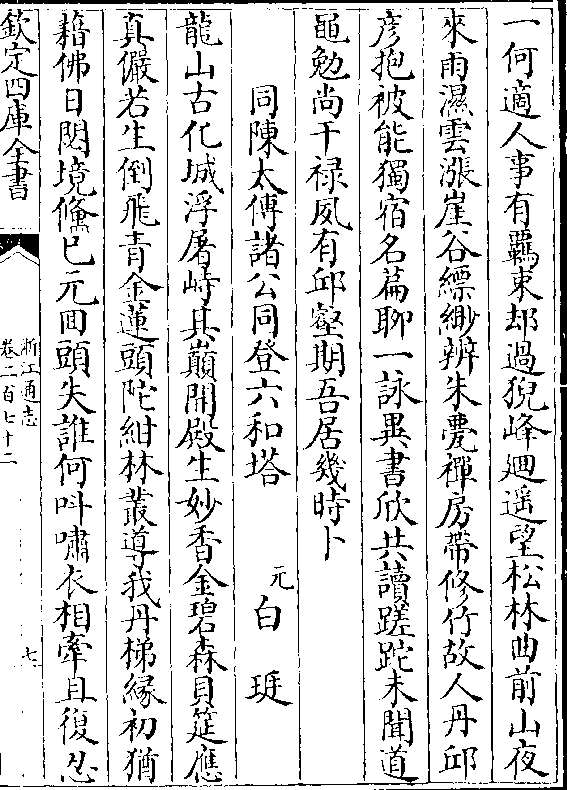 一何適人事有羈束却過猊峰廻遥望松林曲前山夜
來雨濕雲漲崖谷縹緲辨朱甍禪房帶修竹故人丹邱
彦抱被能獨宿名篇聊一詠異書欣共讀蹉跎未聞道
黽勉尚干禄夙有邱壑期吾居幾時卜
同陳太傅諸公同登六和塔 元白珽
龍山古化城浮屠峙其巔開殿生妙香金碧森貝筵應
真儼若生倒飛青金蓮頭陀紺林叢導我丹梯縁初猶
藉佛日閃境儵已元回頭失誰何呌嘯衣相牽且復忍
欽定四庫全書
浙江通志
卷二百七十二
七